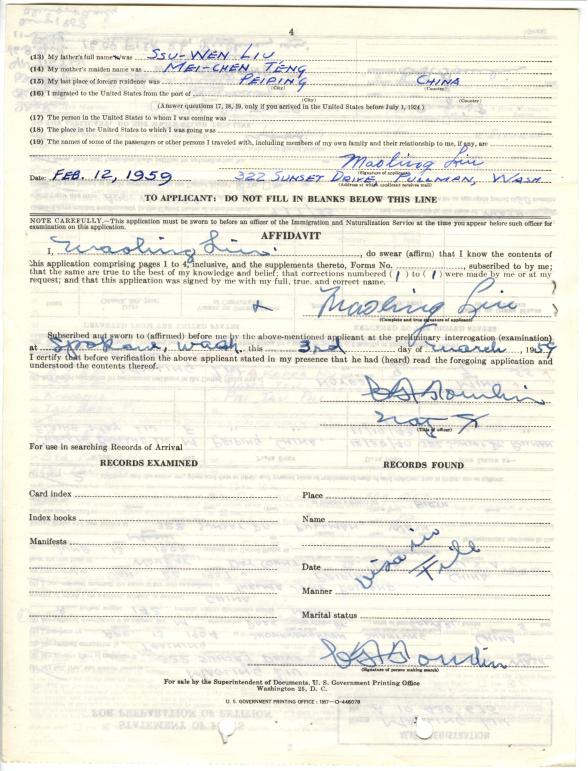 4
(13) My father's full name was SSU-WEN LIU
(14) My mother's maiden name was MEI-CHEN TENG
(15) My last place of foreign residence was PEIPING CHINA
(City) (Country)
(16) I migrated to the United States from the port of
(City) (Country)
(Answer questions 17, 18, 19, only if you arrived in the United States before July 1, 1924.)
(17) The person in the United States to whom I was coming was
(18) The place in the United States to which I was going was
(19) The names of some of the passengers or other persons I traveled with, including members of my own family and their relationship to me, if any, are
Maoling Liu
(Signature of applicant)
Date: FEB. 12, 1959 322 SUNSET DRIVE, PULLMAN, WASH
(Address at which applicant receives mail)
TO APPLICANT: DO NOT FILL IN BLANKS BELOW THIS LINE
NOTE CAREFULLY.—This application must be sworn to before an officer of the Immigration and Naturalization Service at the time you appear before such officer for
examination on this application.
AFFIDAVIT
I, Maoling Liu, do swear (affirm) that I know the contents of
this application comprising pages 1 to 4, inclusive, and the supplements thereto, Forms No. , subscribed to by me;
that the same are true to the best of my knowledge and belief; that corrections numbered (1) to (1) were made by me or at my
request; and that this application was signed by me with my full, true, and correct name.
x Maoling Liu
(Complete and true signature of applicant)
Subscribed and sworn to (affirmed) before me by the above-mentioned applicant at the preliminary interrogation (examination)
at Spokane, Wash this 3rd day of March, 1959
I certify that before verification the above applicant stated in my presence that he had (heard) read the foregoing application and
understood the contents thereof.
(Title of officer)
For use in searching Records of Arrival
RECORDS EXAMINED RECORDS FOUND
Card index Place
Index books Name
Manifests
visa in
File
Date
Manner
Marital status
(Signature of person making search)
For sale by the Superintendent of Documents, U. S. Government Printing Office
Washington 25, D. C.
U. S. GOVERNMENT PRINTING OFFICE : 1957—O-446078